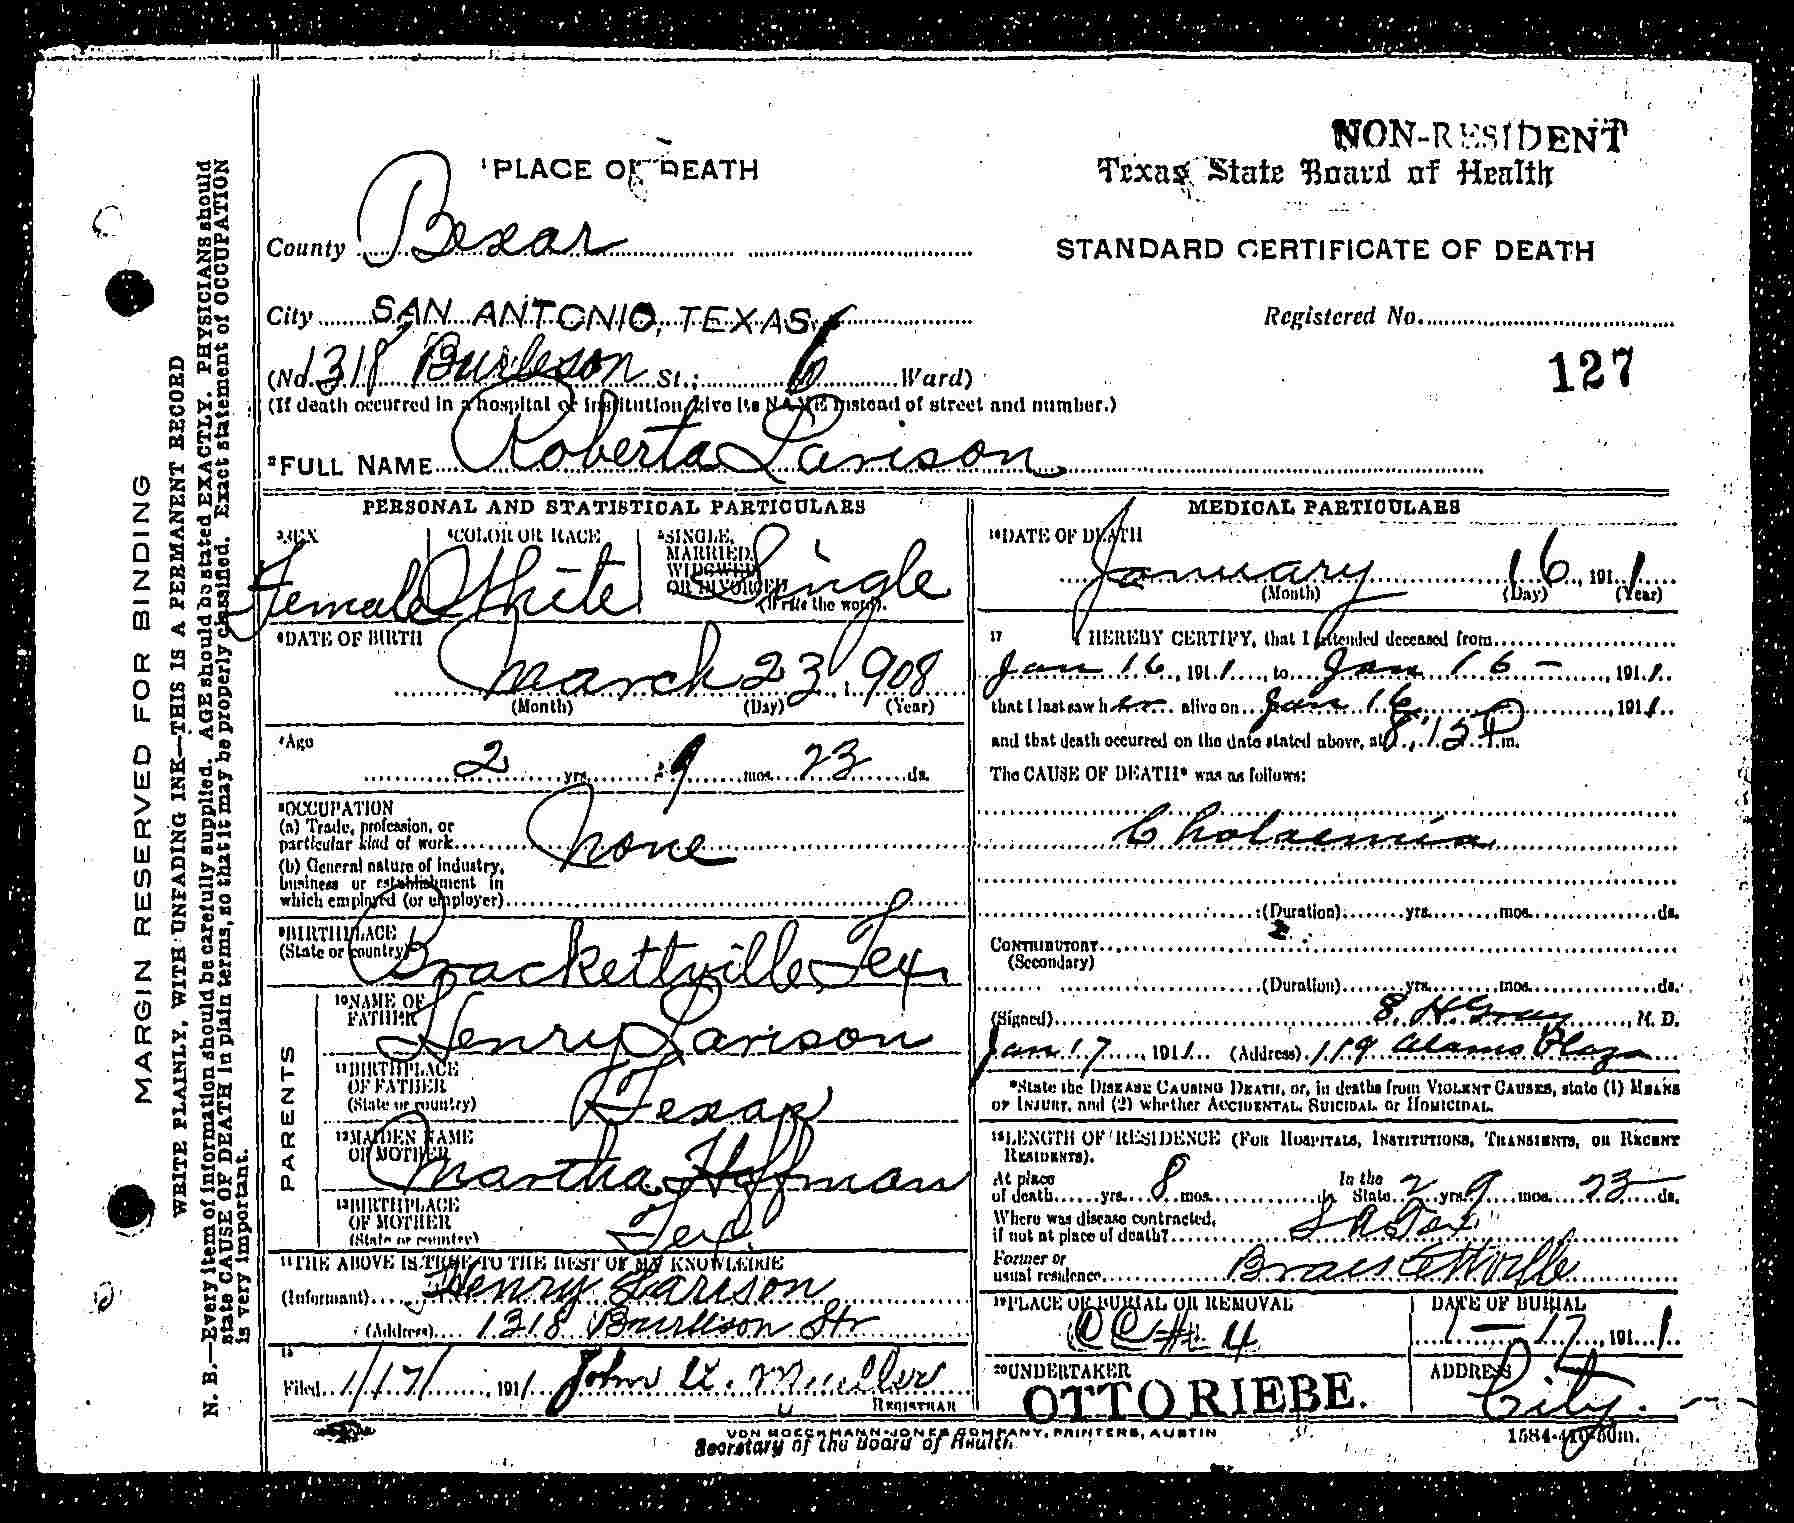 NON-RESIDENT
Texas State Board of Health
STANDARD CERTIFICATE OF DEATH
Registered No.
127
1 PLACE OF DEATH
County Bexar
City SAN ANTONIO, TEXAS
(No. 1318 Burleson St.; 6 Ward)
(If death occurred in a hospital or institution, give its NAME instead of street and number.)
2 FULL NAME Roberta Larison
PERSONAL AND STATISTICAL PARTICULARS
3 SEX Female
4 COLOR OR RACE White
5 SINGLE, MARRIED, WIDOWED OR DIVORCED (Write the word). Single
6 DATE OF BIRTH
March 23, 1908
(Month) (Day) (Year)
7 Age
2 yrs. 9 mos. 23 ds.
8 OCCUPATION
(a) Trade, profession, or
particular kind of work None
(b) General nature of industry,
business or establishment in
which employed (or employer)
9 BIRTHPLACE
(State or country) Brackettville Tex.
PARENTS
10 NAME OF
FATHER Henry Larison
11 BIRTHPLACE
OF FATHER
(State or country) Texas
12 MAIDEN NAME
OF MOTHER Martha Hoffman
13 BIRTHPLACE
OF MOTHER
(State or country) Tex.
14 THE ABOVE IS TRUE TO THE BEST OF MY KNOWLEDGE
(Informant) Henry Larison
(Address) 1318 Burleson Str
15
Filed 1/17/, 1911 John
REGISTRAR
MEDICAL PARTICULARS
16 DATE OF DEATH
January 16, 1911
(Month) (Day) (Year)
17 I HEREBY CERTIFY, that I attended deceased from
Jan 16, 1911, to Jan 16-, 1911,
that I last saw her alive on Jan 16, 1911
and that death occurred on the date stated above, at 8:15 P m.
The CAUSE OF DEATH* was as follows:
Cholaemia
(Duration) yrs. mos. ds.
CONTRIBUTORY
(Secondary)
(Duration) yrs. mos. ds.
(Signed) Gray, M. D.
Jan 17, 1911 (Address) 119 Alamo Plaza
*State the DISEASE CAUSING DEATH, or, in deaths from VIOLENT CAUSES, state (1) MEANS
OF INJURY, and (2) whether ACCIDENTAL, SUICIDAL or HOMICIDAL.
18 LENGTH OF RESIDENCE (FOR HOSPITALS, INSTITUTIONS, TRANSIENTS, OR RECENT
RESIDENTS).
At place of death yrs. 8 mos. ds. In the State 2 yrs. 9 mos. 23 ds.
Where was disease contracted,
if not at place of death? S A Tex
Former or
usual residence Brackettville
19 PLACE OF BURIAL OR REMOVAL
CC # 4
DATE OF BURIAL
1-17, 1911
20 UNDERTAKER
OTTO RIEBE.
ADDRESS
City.
VON BOECKMANN-JONES COMPANY, PRINTERS, AUSTIN
Secretary of the Board of Health
MARGIN RESERVED FOR BINDING
WRITE PLAINLY, WITH UNFADING INK—THIS IS A PERMANENT RECORD
N. B.—Every item of information should be carefully supplied. AGE should be stated EXACTLY. PHYSICIANS should
state CAUSE OF DEATH in plain terms, so that it may be properly classified. Exact statement of OCCUPATION
is very important.